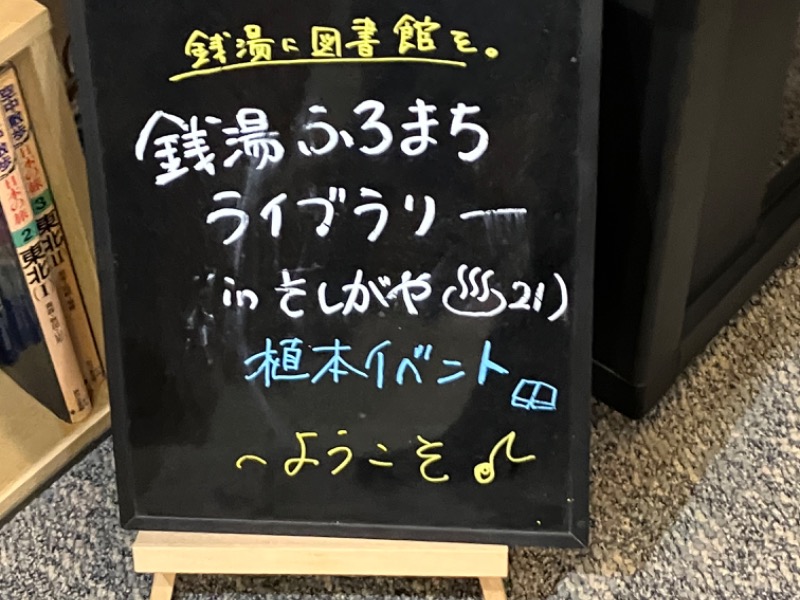 銭湯に図書館を。
銭湯ふろまち
ライブラリー
(in そしがや♨21)
植本イベント
～ようこそ♪
空中散歩
日本の旅
3
東北II
空中散歩
日本の旅
2
東北I